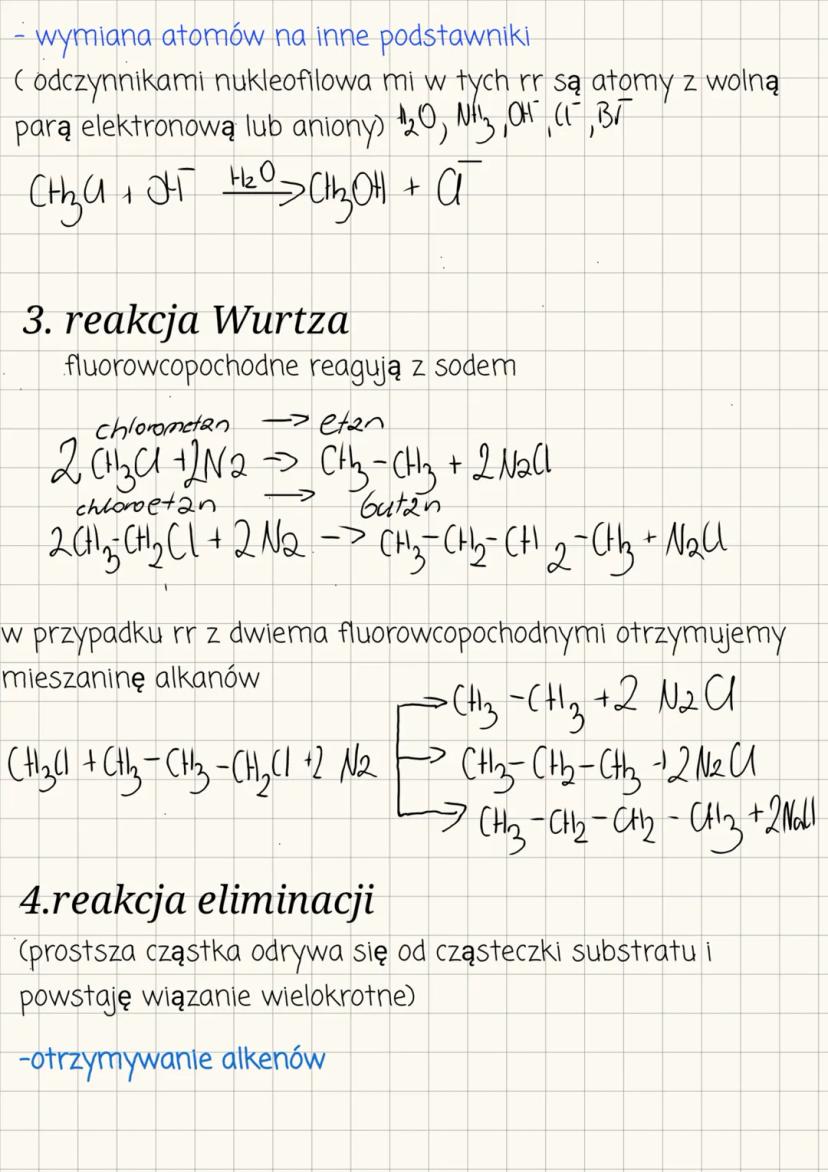 - wymiana atomów na inne podstawniki
( odczynnikami nukleofilowa mi w tych rr są atomy z wolną
parą elektronową lub aniony) H2O, NH3, OH⁻, Cl⁻, Br⁻
CH3Cl + OH⁻ H2O → CH3OH + Cl⁻
3. reakcja Wurtza
fluorowcopochodne reagują z sodem
chlorometan → etan
2 CH3Cl + 2Na → CH3-CH3 + 2 NaCl
chloroetan → butan
2CH3-CH2Cl + 2 Na → CH3-CH2-CH2-CH3 + NaCl
w przypadku rr z dwiema fluorowcopochodnymi otrzymujemy
mieszaninę alkanów
→ CH3-CH3 + 2 NaCl
CH3Cl + CH3-CH3-CH2Cl + 2 Na → CH3-CH2-CH3 + 2NaCl
→ CH3-CH2-CH2-CH3 + 2NaCl
4.reakcja eliminacji
(prostsza cząstka odrywa się od cząsteczki substratu i
powstaję wiązanie wielokrotne)
-otrzymywanie alkenów